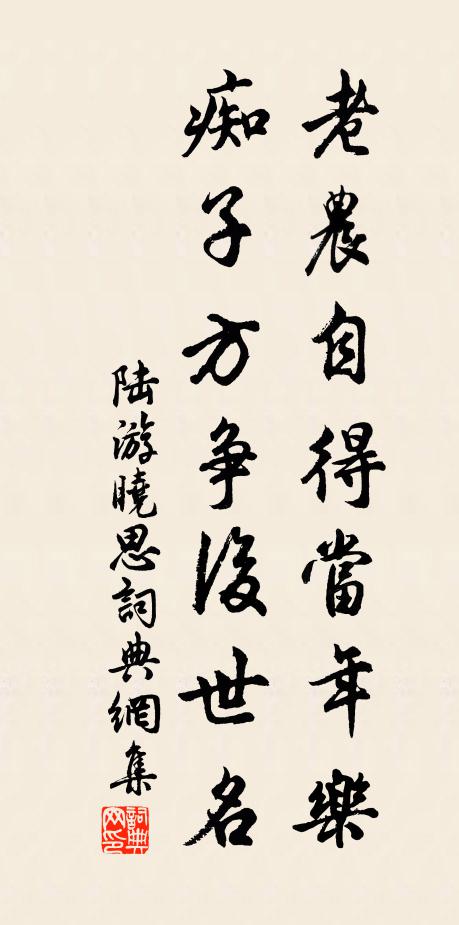 老農自得當年樂
痴子方爭後世名
陸游曉思詞典網集
詞典網印